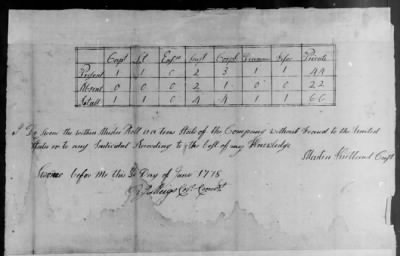 Capt Lt Ensn Serjt Corpl Drummr Fifer Private
Present 1 1 0 2 3 1 1 44
Absent 0 0 0 2 1 0 0 22
Totall 1 1 0 4 4 1 1 66
I Do Swear the within Muster Roll is a true State of the Company without Fraud to the United
States or to any Individual According to the best of my Knowledge
Capt
Sworn before Me this Day of June 1778